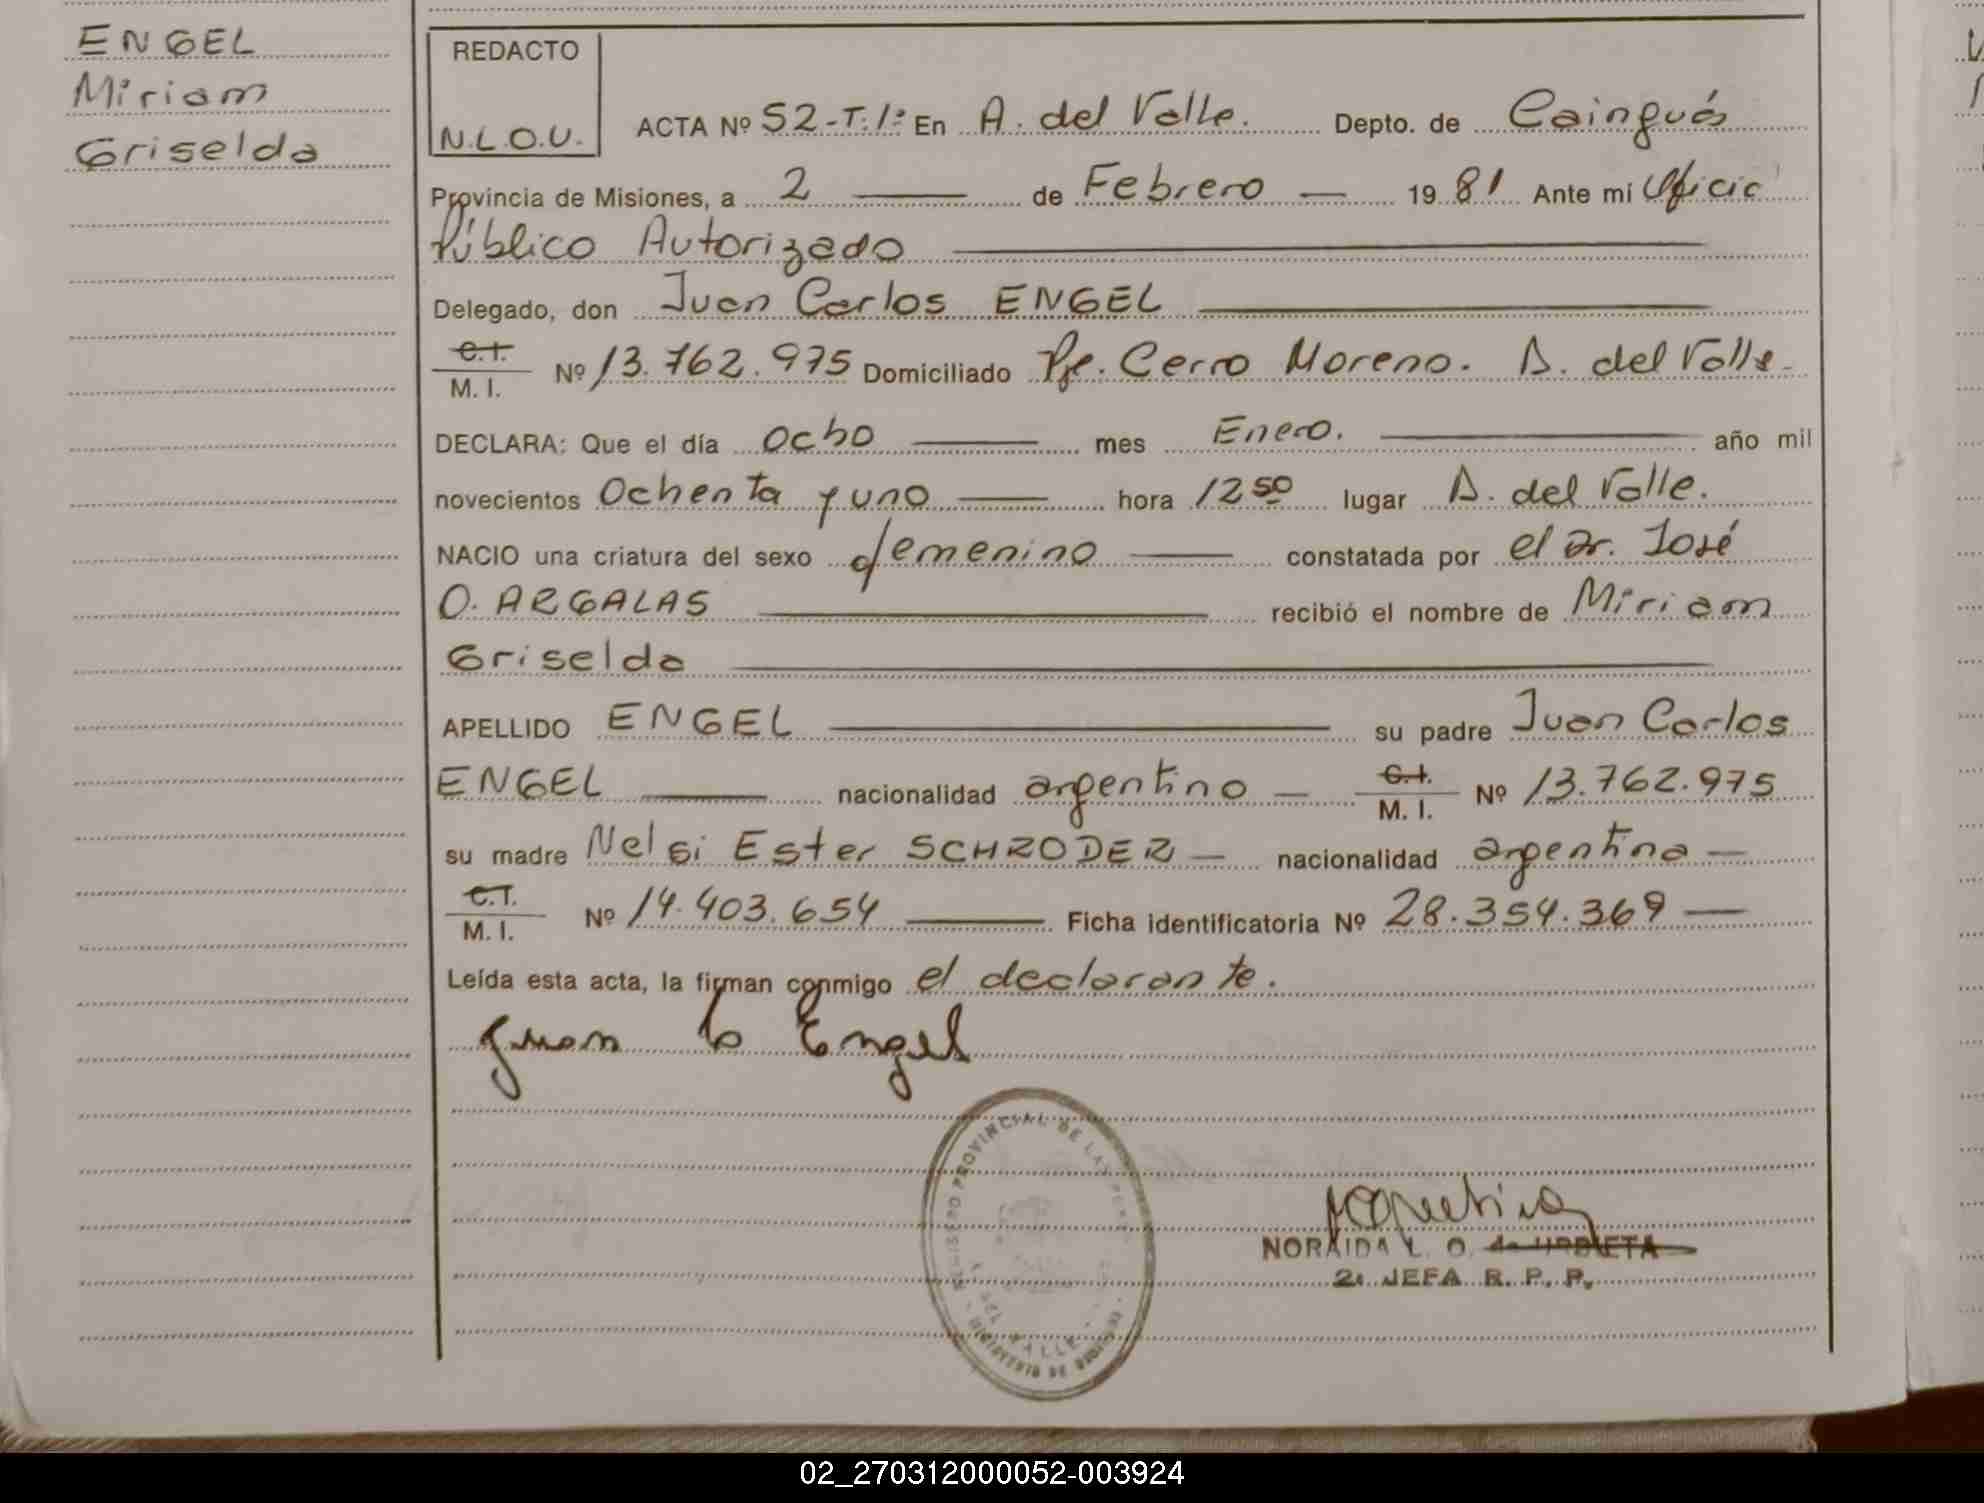 ENGEL
Miriam
Griselda
REDACTO
N.L.O.U.
ACTA Nº 52-T:1º En A. del Valle. Depto. de Cainguás
Provincia de Misiones, a 2 — de Febrero — 1981 Ante mi Oficic
Público Autorizado —
Delegado, don Juan Carlos ENGEL —
C.I.
M. I. Nº 13.762.975 Domiciliado Pje. Cerro Moreno. A. del Valle.
DECLARA: Que el día ocho — mes Enero. — año mil
novecientos Ochenta y uno — hora 12 50 lugar A. del Valle.
NACIO una criatura del sexo femenino — constatada por el Dr. José
O. ARGALAS — recibió el nombre de Miriam
Griselda —
APELLIDO ENGEL — su padre Juan Carlos
ENGEL — nacionalidad argentino — C.I.
M. I. Nº 13.762.975
su madre Nelsi Ester SCHRODER — nacionalidad argentina —
C.I.
M. I. Nº 14.403.654 — Ficha identificatoria Nº 28.354.369 —
Leída esta acta, la firman conmigo el declarante.
Juan Co Engel
REGISTRO PROVINCIAL DE LAS
VALLE
NORAIDA L. O. de URBIETA
2a JEFA R. P. P.
02_270312000052-003924